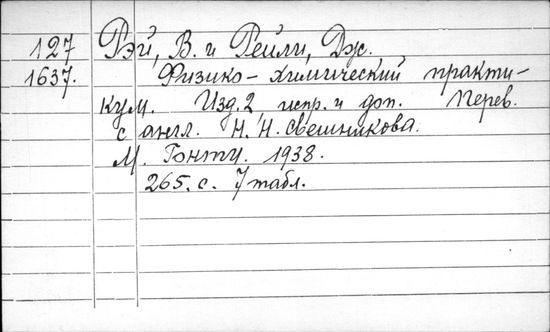 127 Рэй, В. и Рейли, Дж.
1637. Физико-химический практи-
кум. Изд. 2, испр. и доп. Перев.
с англ. Н. Н. Свешникова.
М. Гонти. 1938.
265. с. 7 табл.